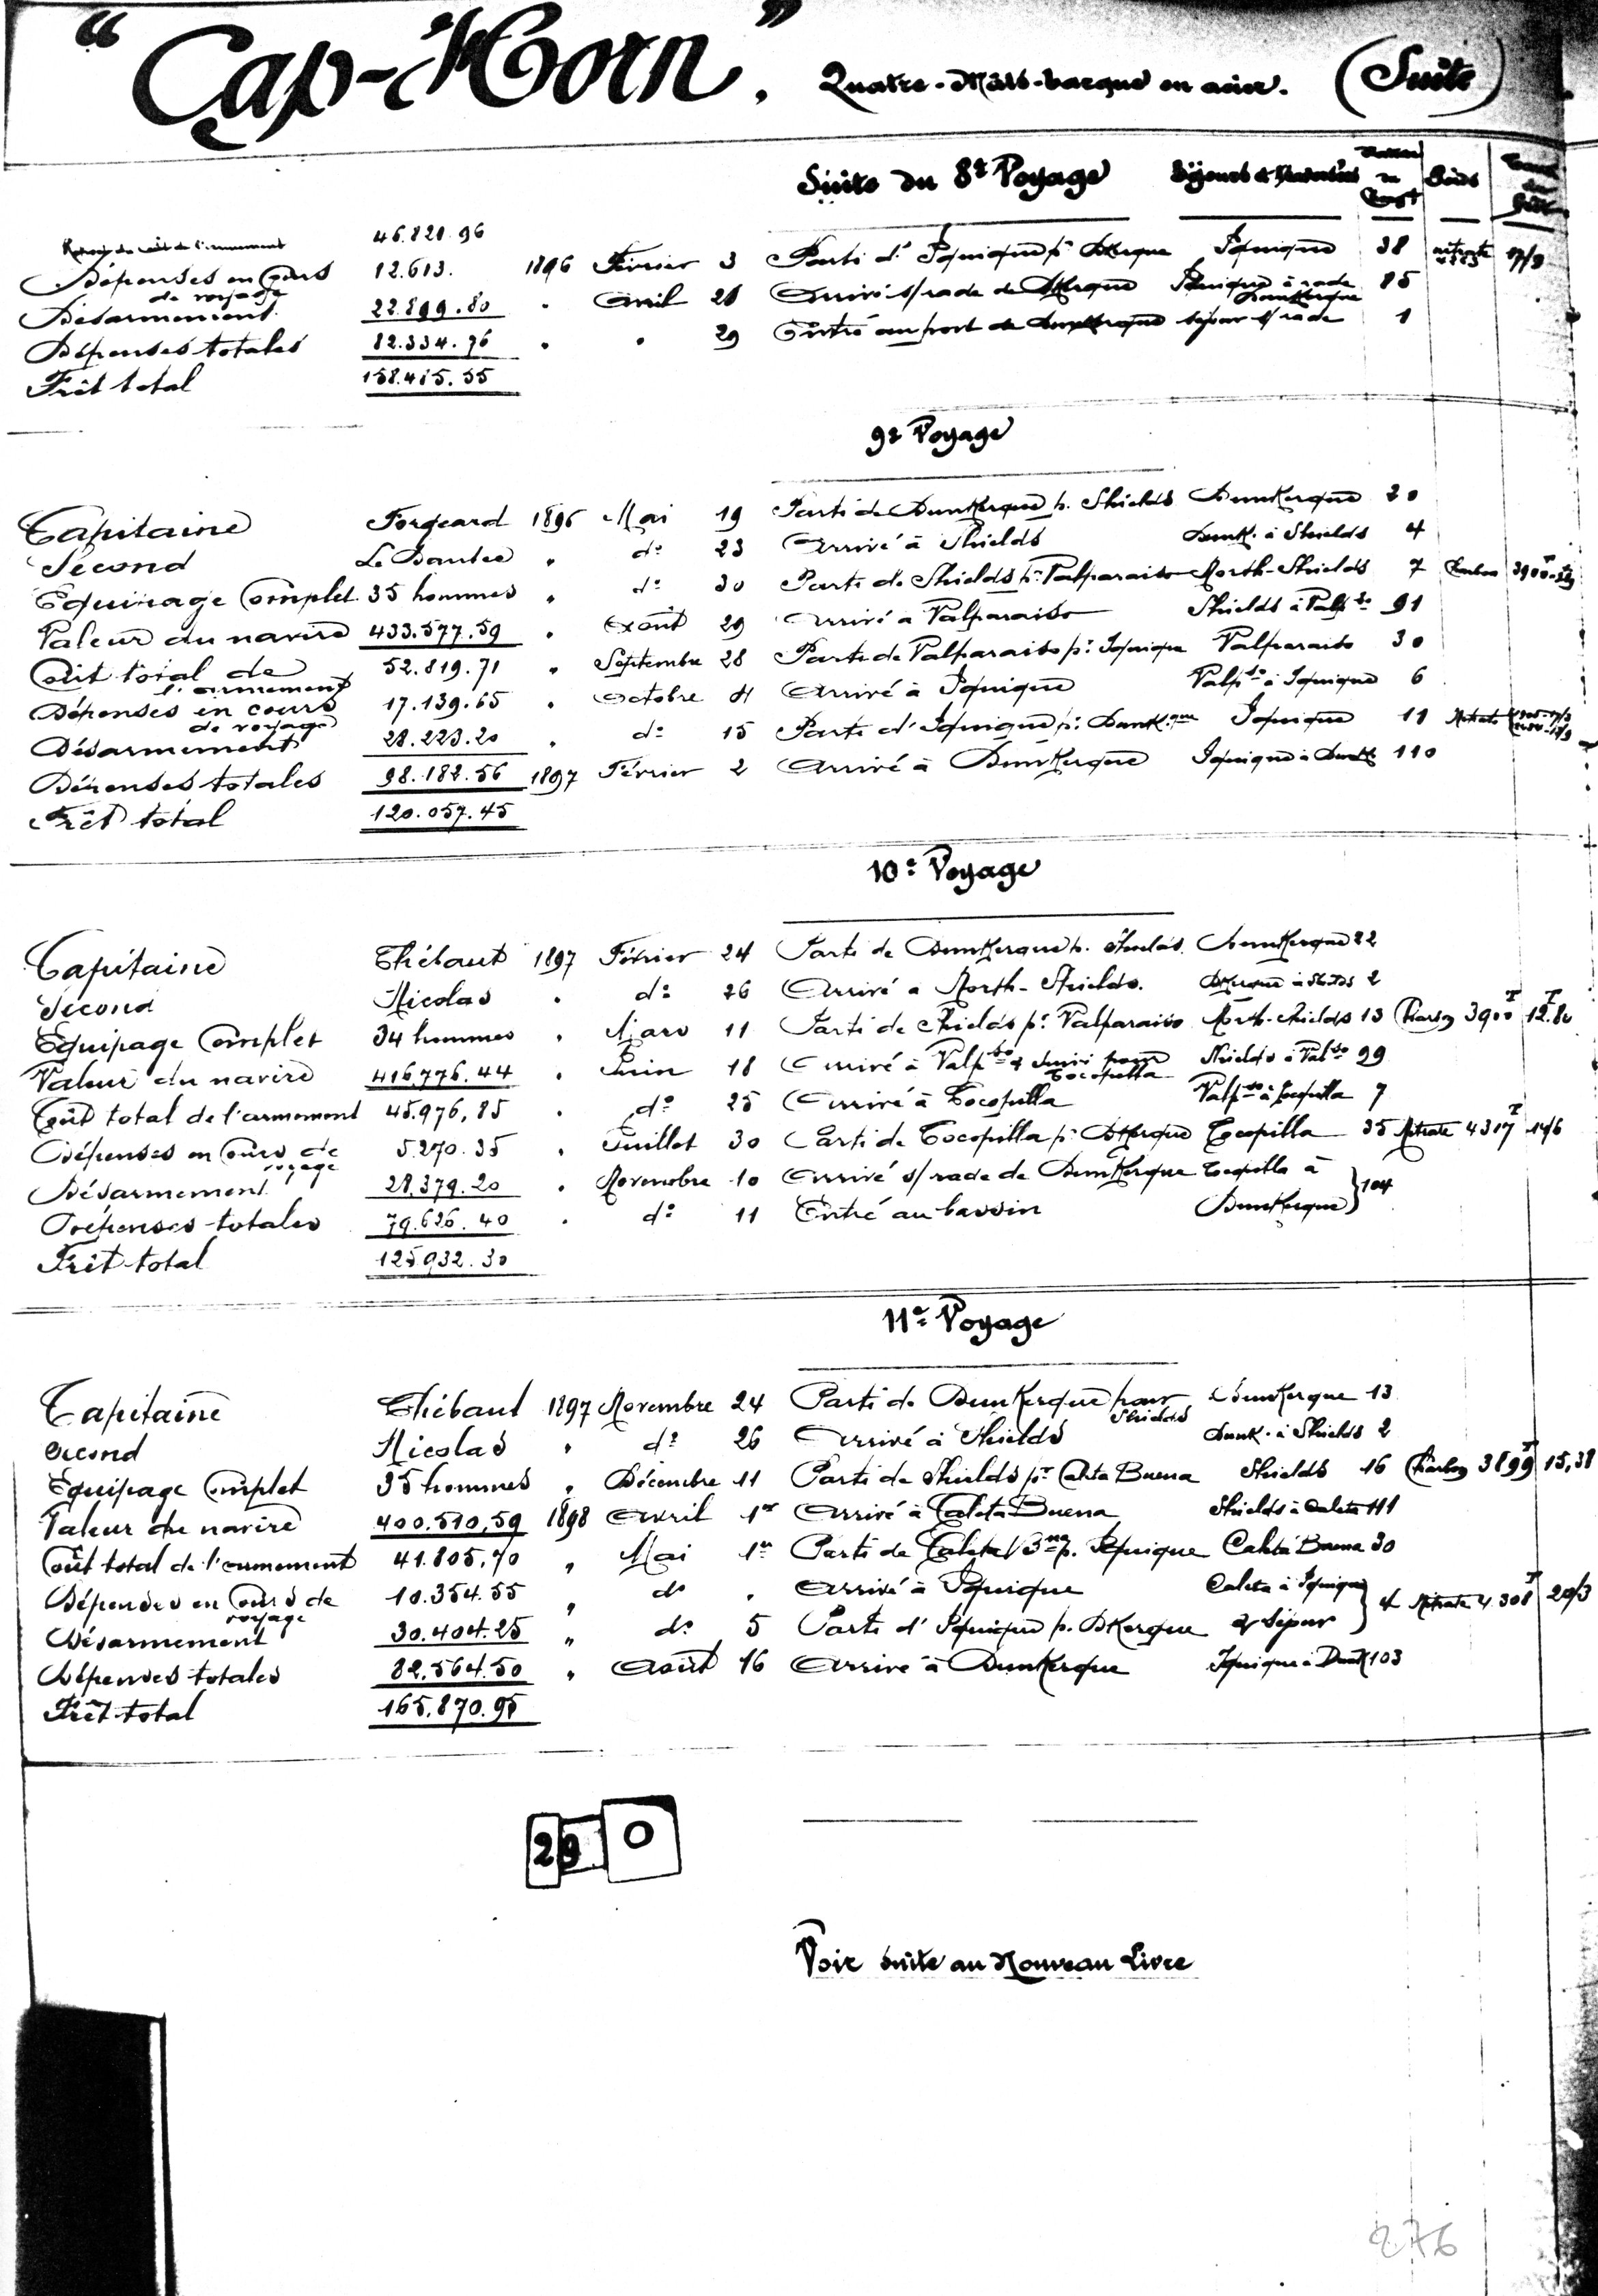 "Cap-Horn". Quatre-Mâts-barque en acier. (Suite)
Suite du 8e Voyage Séjours et Traversées
46.821.96
Dépenses en Cours 12.613. 1896 Février 3 Parti d'Iquique pr Dkerque Iquique 38 nitrate 17/9
de voyage
Désarmement 22.899.80 " Avril 28 Arrivé s/rade de Dkerque Iquique à rade 85
Dunkerque
Dépenses totales 82.334.76 " " 29 Entré au port de Dunkerque séjour s/ rade 1
Frêt total 158.415.55
9e Voyage
Capitaine Forgeard 1896 Mai 19 Parti de Dunkerque p. Shields Dunkerque 20
Second " do 23 Arrivé à Shields Dunk. à Shields 4
Equipage Complet 35 hommes " do 30 Parti de Shields pr Valparaiso North-Shields 7
Valeur du navire 433.577.59 " Août 29 Arrivé à Valparaiso Shields à Valpso 91
Coût total de 52.819.71 " Septembre 28 Parti de Valparaiso pr Iquique Valparaiso 30
l'armement
Dépenses en cours 17.139.65 " Octobre 4 Arrivé à Iquique Valpso à Iquique 6
de voyage
Désarmement 28.223.20 " do 15 Parti d'Iquique pr Dunkque Iquique 11 Nitrate
Dépenses totales 98.182.56 1897 Février 2 Arrivé à Dunkerque Iquique à Dunk. 110
Frêt total 120.057.45
10e Voyage
Capitaine Thébaut 1897 Février 24 Parti de Dunkerque p. Shields Dunkerque 22
Second Nicolas " do 26 Arrivé à North-Shields. Dkerque à Shields 2
Equipage Complet 34 hommes " Mars 11 Parti de Shields pr Valparaiso North-Shields 13 Charbon 3900T 12.80
Valeur du navire 416.776.44 " Juin 18 Arrivé à Valpso & suivi pour Shields à Valso 99
Tocopilla
Coût total de l'armement 45.976,85 " do 25 Arrivé à Tocopilla Valpso à Tocopilla 7
Dépenses en Cours de 5.270.35 " Juillet 30 Parti de Tocopilla pr Dkerque Tocopilla 35 Nitrate 4317T 14/6
voyage
Désarmement 28.379.20 " Novembre 10 Arrivé s/rade de Dunkerque Tocopilla à
Dépenses totales 79.626.40 " do 11 Entré au bassin Dunkerque } 104
Frêt total 125.932.30
11e Voyage
Capitaine Thébaut 1897 Novembre 24 Parti de Dunkerque pour Dunkerque 13
Shields
Second Nicolas " do 26 Arrivé à Shields Dunk. à Shields 2
Equipage Complet 35 hommes " Décembre 11 Parti de Shields pr Caleta Buena Shields 16 Charbon 3899T 15,38
Valeur du navire 400.510,59 1898 Avril 1er Arrivé à Caleta Buena Shields à Caleta 111
Coût total de l'armement 41.805,70 " Mai 1er Parti de Caleta Bna p. Iquique Caleta Buena 30
Dépenses en Cours de 10.354.55 " do " Arrivé à Iquique Caleta à Iquique
voyage
Désarmement 30.404.25 " do 5 Parti d'Iquique p. Dkerque & Séjour } 4 Nitrate 4.308T 20/3
Dépenses totales 82.564.50 " Août 16 Arrivé à Dunkerque Iquique à Dunk 103
Frêt total 165.870.95
29 0
Voir suite au Nouveau Livre
276